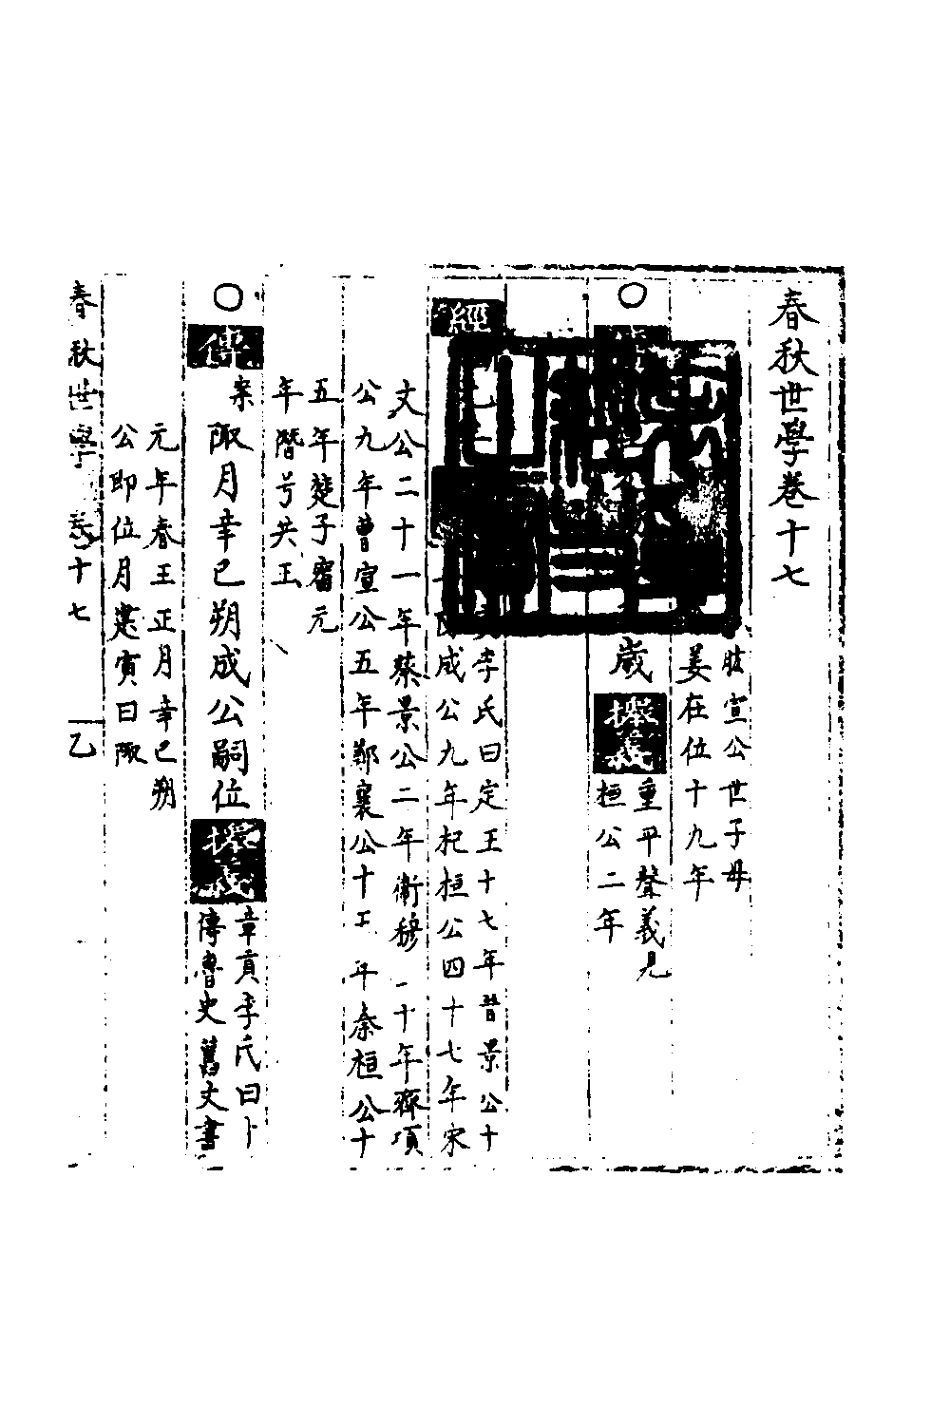 春秋世學卷十七
肱宣公世子母
姜在位十九年
○
歲
釋義
重平聲義見
桓公二年
經
李氏曰定王十七年晉景公十
成公九年杞桓公四十七年宋
文公二十一年蔡景公二年衛穆 十年齊頃
公九年曹宣公五年鄭襄公十 年秦桓公十
五年楚子審元
年僭号共王
○
傳
案
陬月辛巳朔成公嗣位
釋義
章貢李氏曰卜
傳魯史舊文書
元年春王正月辛巳朔
公即位月建寅曰陬
春秋世學 卷十七
乙